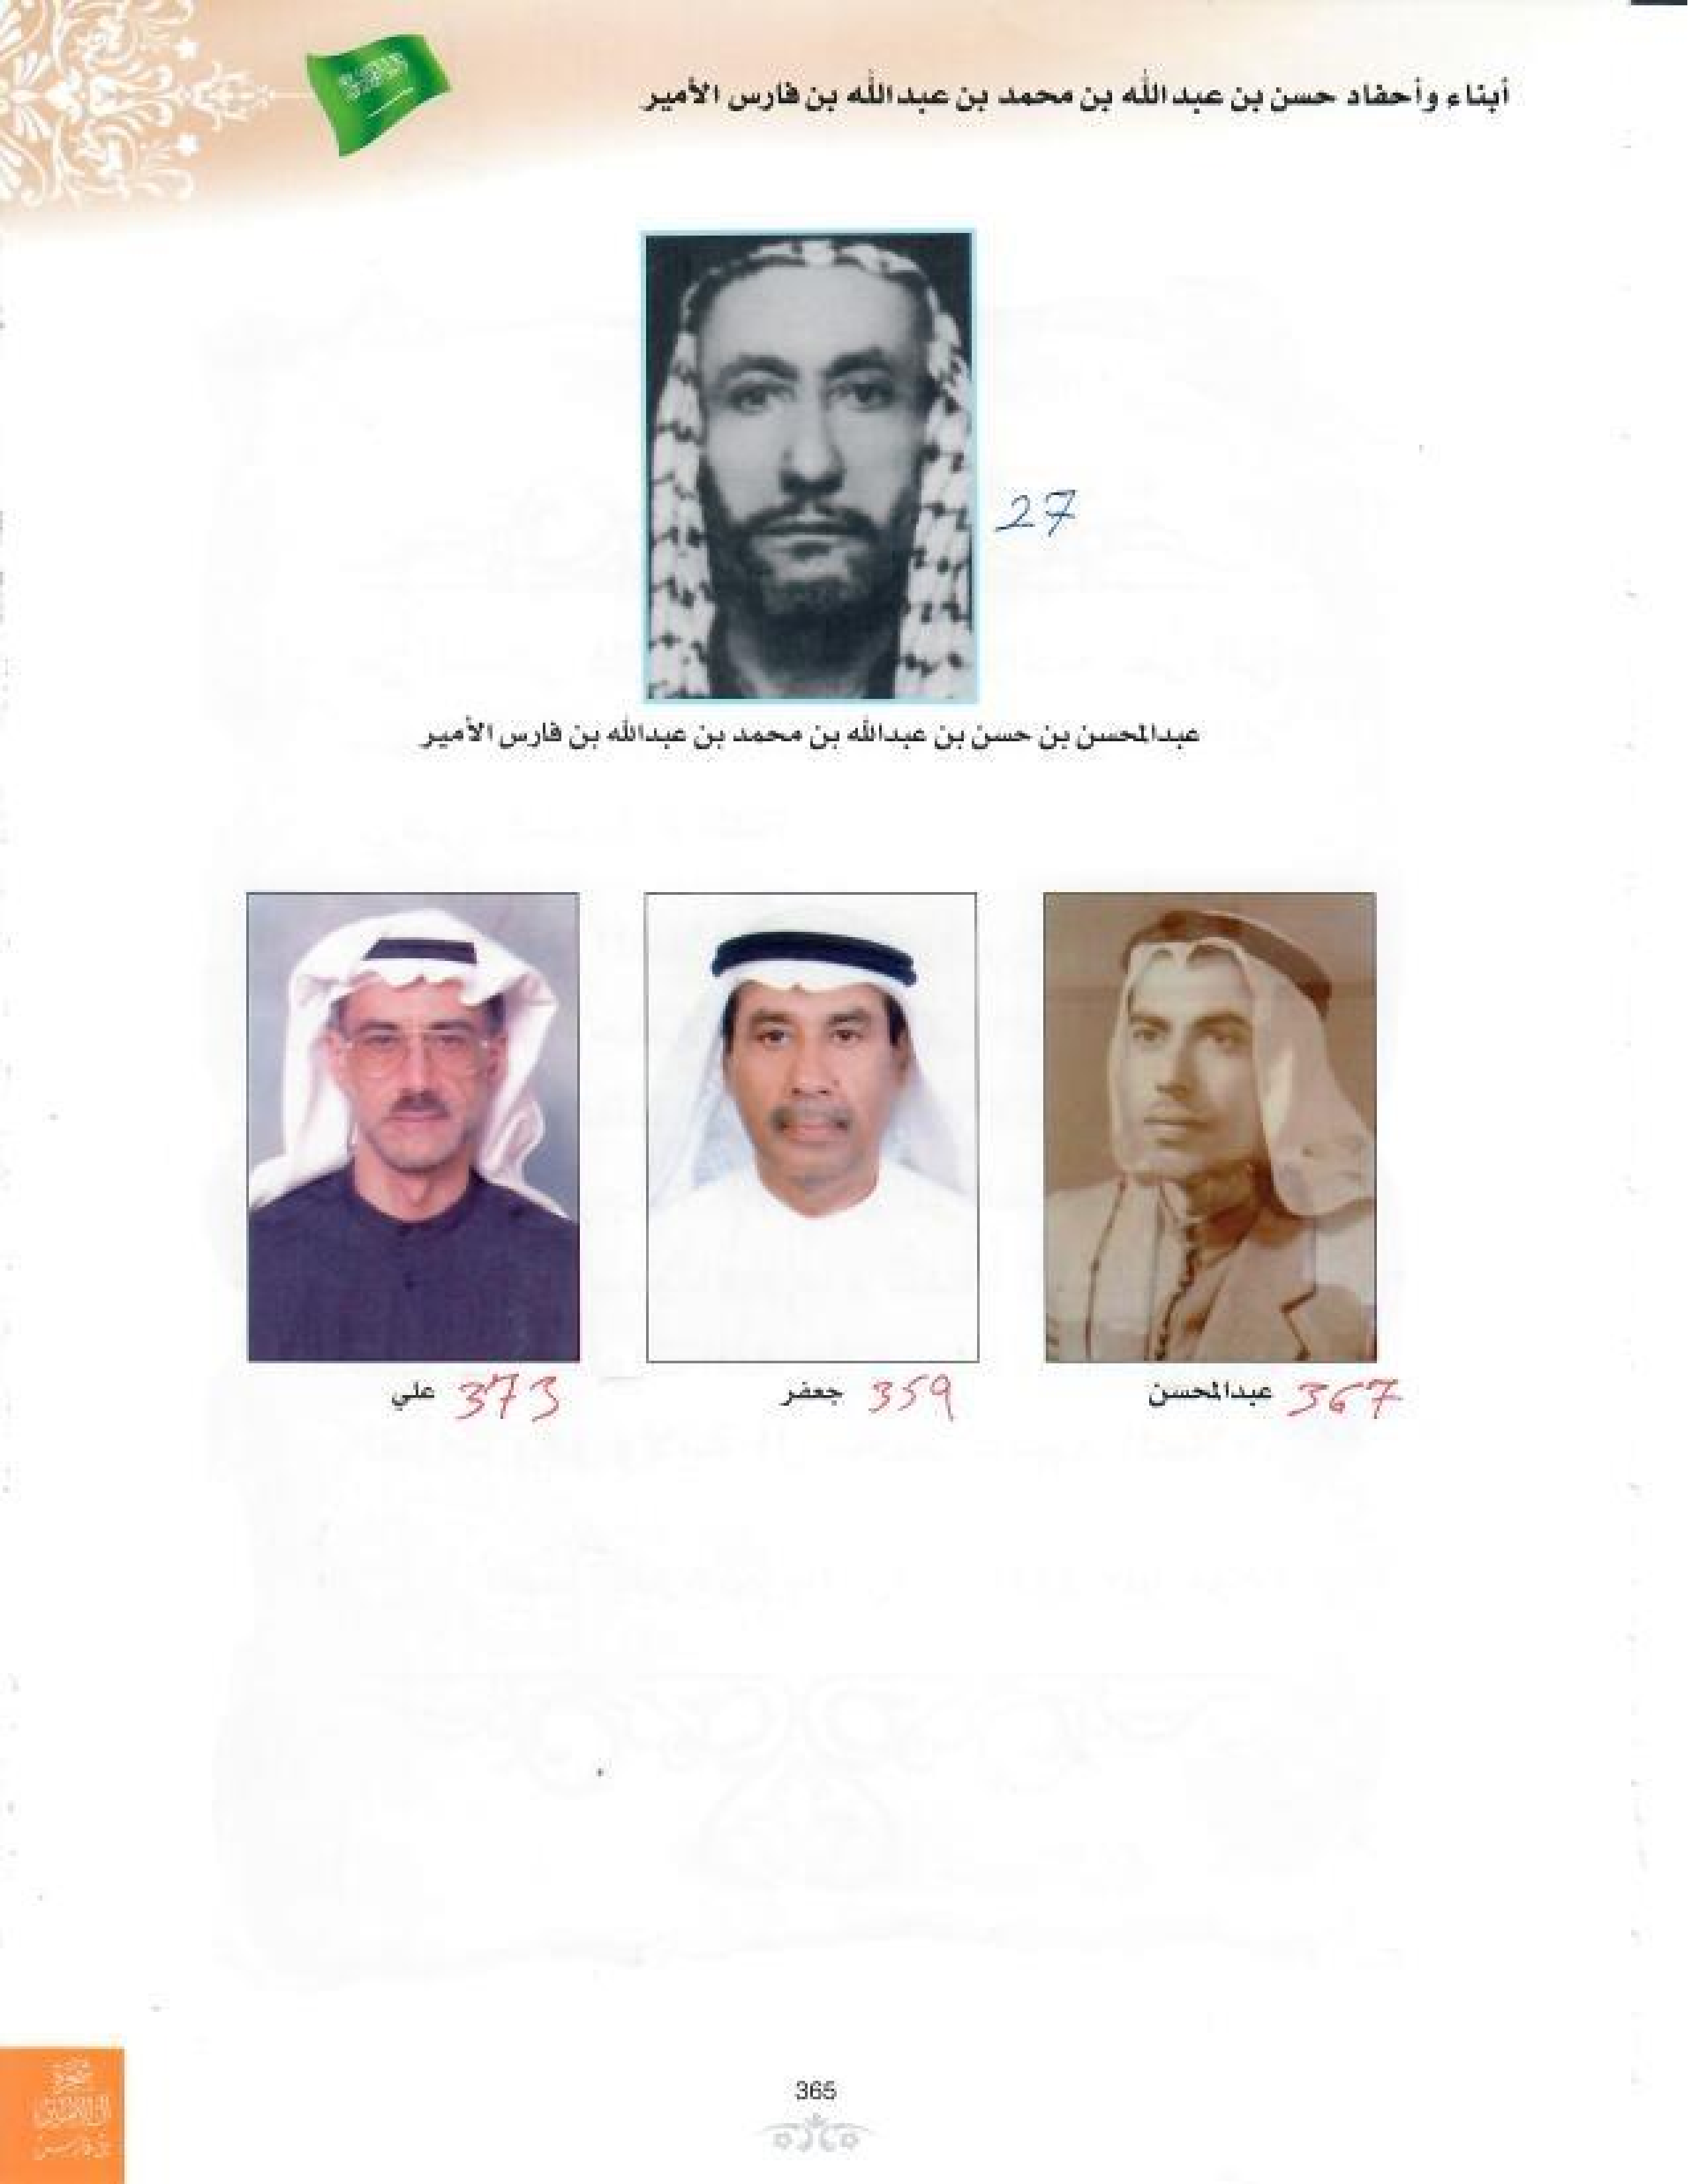 أبناء وأحفاد حسن بن عبدالله بن محمد بن عبدالله بن فارس الأمير
27
عبدالمحسن بن حسن بن عبدالله بن محمد بن عبدالله بن فارس الأمير
367 عبدالمحسن
359 جعفر
373 علي
365